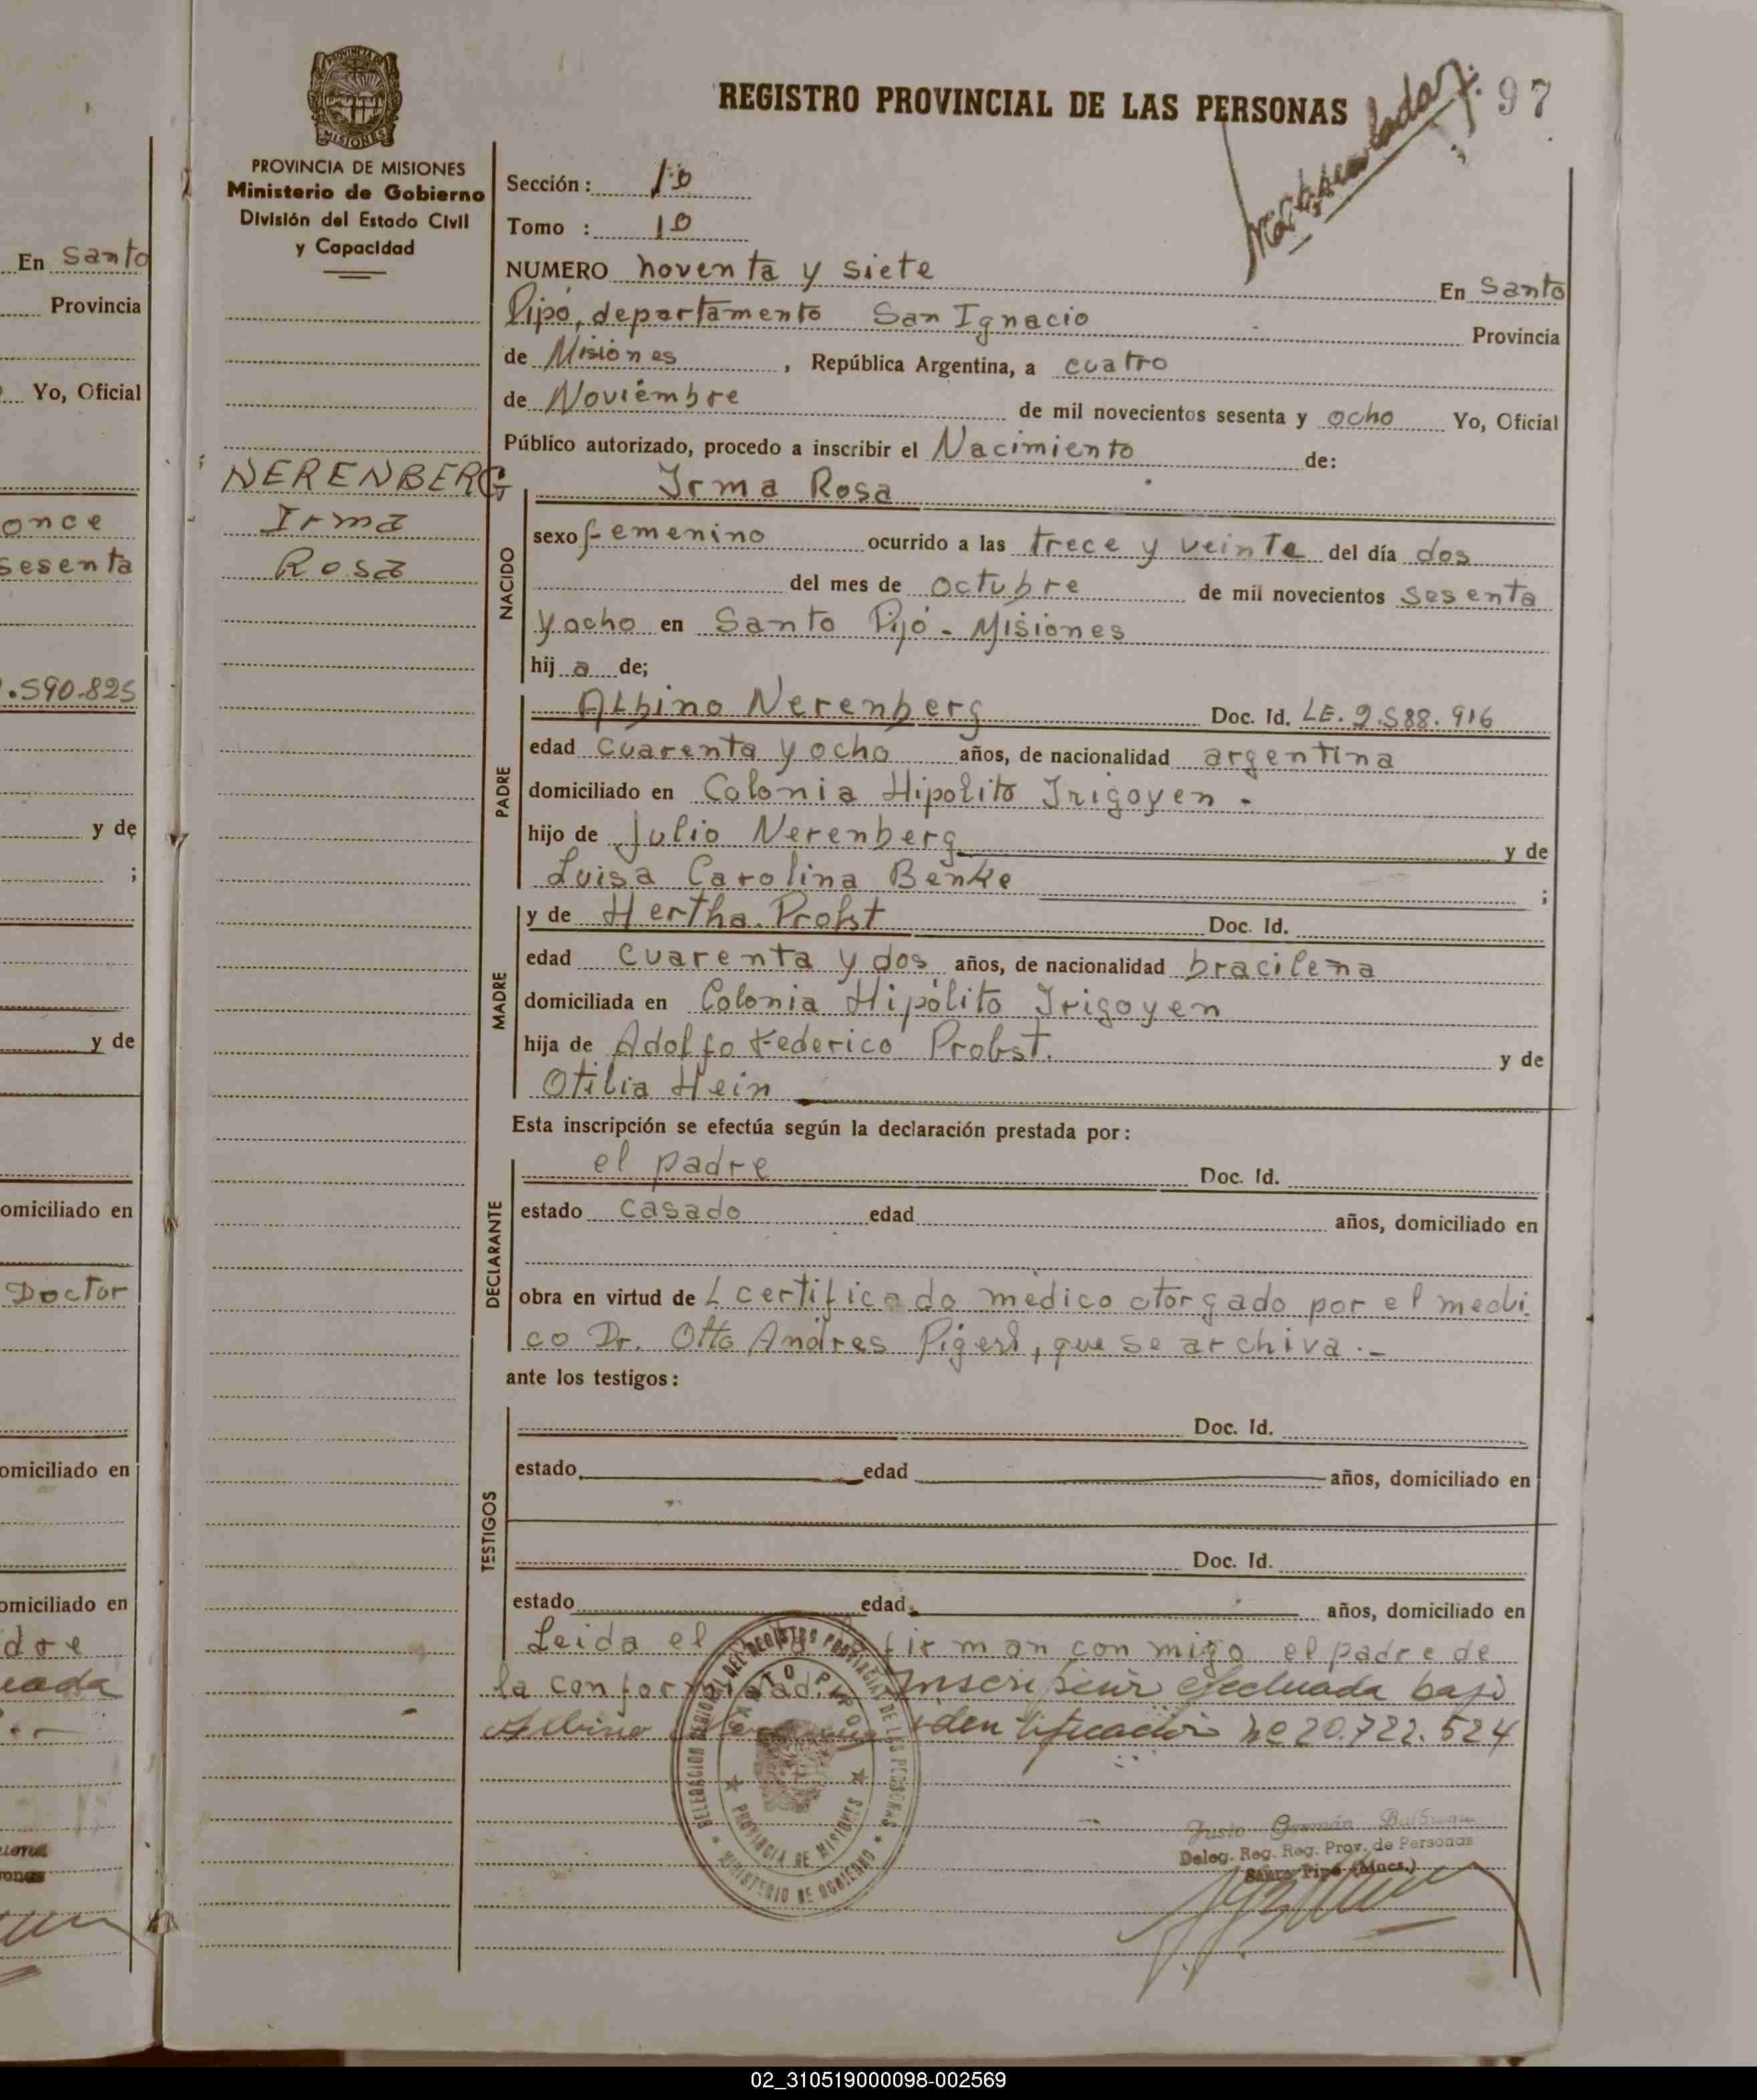 En Santo
Provincia
Yo, Oficial
once
sesenta
.590.825
y de
;
y de
omiciliado en
Doctor
omiciliado en
omiciliado en
dre
PROVINCIA DE
MISIONES
PROVINCIA DE MISIONES
Ministerio de Gobierno
División del Estado Civil
y Capacidad
NERENBERG
Irma
Rosa
REGISTRO PROVINCIAL DE LAS PERSONAS
97
Sección : 1º
Tomo : 1º
NUMERO noventa y siete En Santo
Pipó, departamento San Ignacio Provincia
de Misiones , República Argentina, a cuatro
de Noviembre de mil novecientos sesenta y ocho Yo, Oficial
Público autorizado, procedo a inscribir el Nacimiento de:
Irma Rosa
NACIDO
sexo femenino ocurrido a las trece y veinte del día dos
del mes de octubre de mil novecientos sesenta
y ocho en Santo Pipó - Misiones
hij a de;
PADRE
Albino Nerenberg Doc. Id. LE. 2.588.916
edad cuarenta y ocho años, de nacionalidad argentina
domiciliado en Colonia Hipolito Irigoyen -
hijo de Julio Nerenberg y de
Luisa Carolina Benke ;
MADRE
y de Hertha Probst Doc. Id.
edad cuarenta y dos años, de nacionalidad bracileña
domiciliada en Colonia Hipólito Irigoyen
hija de Adolfo Federico Probst. y de
Otilia Hein
Esta inscripción se efectúa según la declaración prestada por:
DECLARANTE
el padre Doc. Id.
estado casado edad años, domiciliado en
obra en virtud de l certificado medico otorgado por el medi
co Dr. Otto Andres Pigerl, que se archiva.-
ante los testigos:
TESTIGOS
Doc. Id.
estado edad años, domiciliado en
Doc. Id.
estado edad años, domiciliado en
Leida el firman conmigo el padre de
la conformidad. Inscripción efectuada bajo
Albino identificación nº 20.722.524
DELEGACION REGIONAL DEL REGISTRO PROVINCIAL DE LAS PERSONAS
SANTO PIPO
PROVINCIA DE MISIONES
MINISTERIO DE GOBIERNO
Justo Germán
Deleg. Reg. Reg. Prov. de Personas
Santo Pipó (Mnes.)
02_310519000098-002569